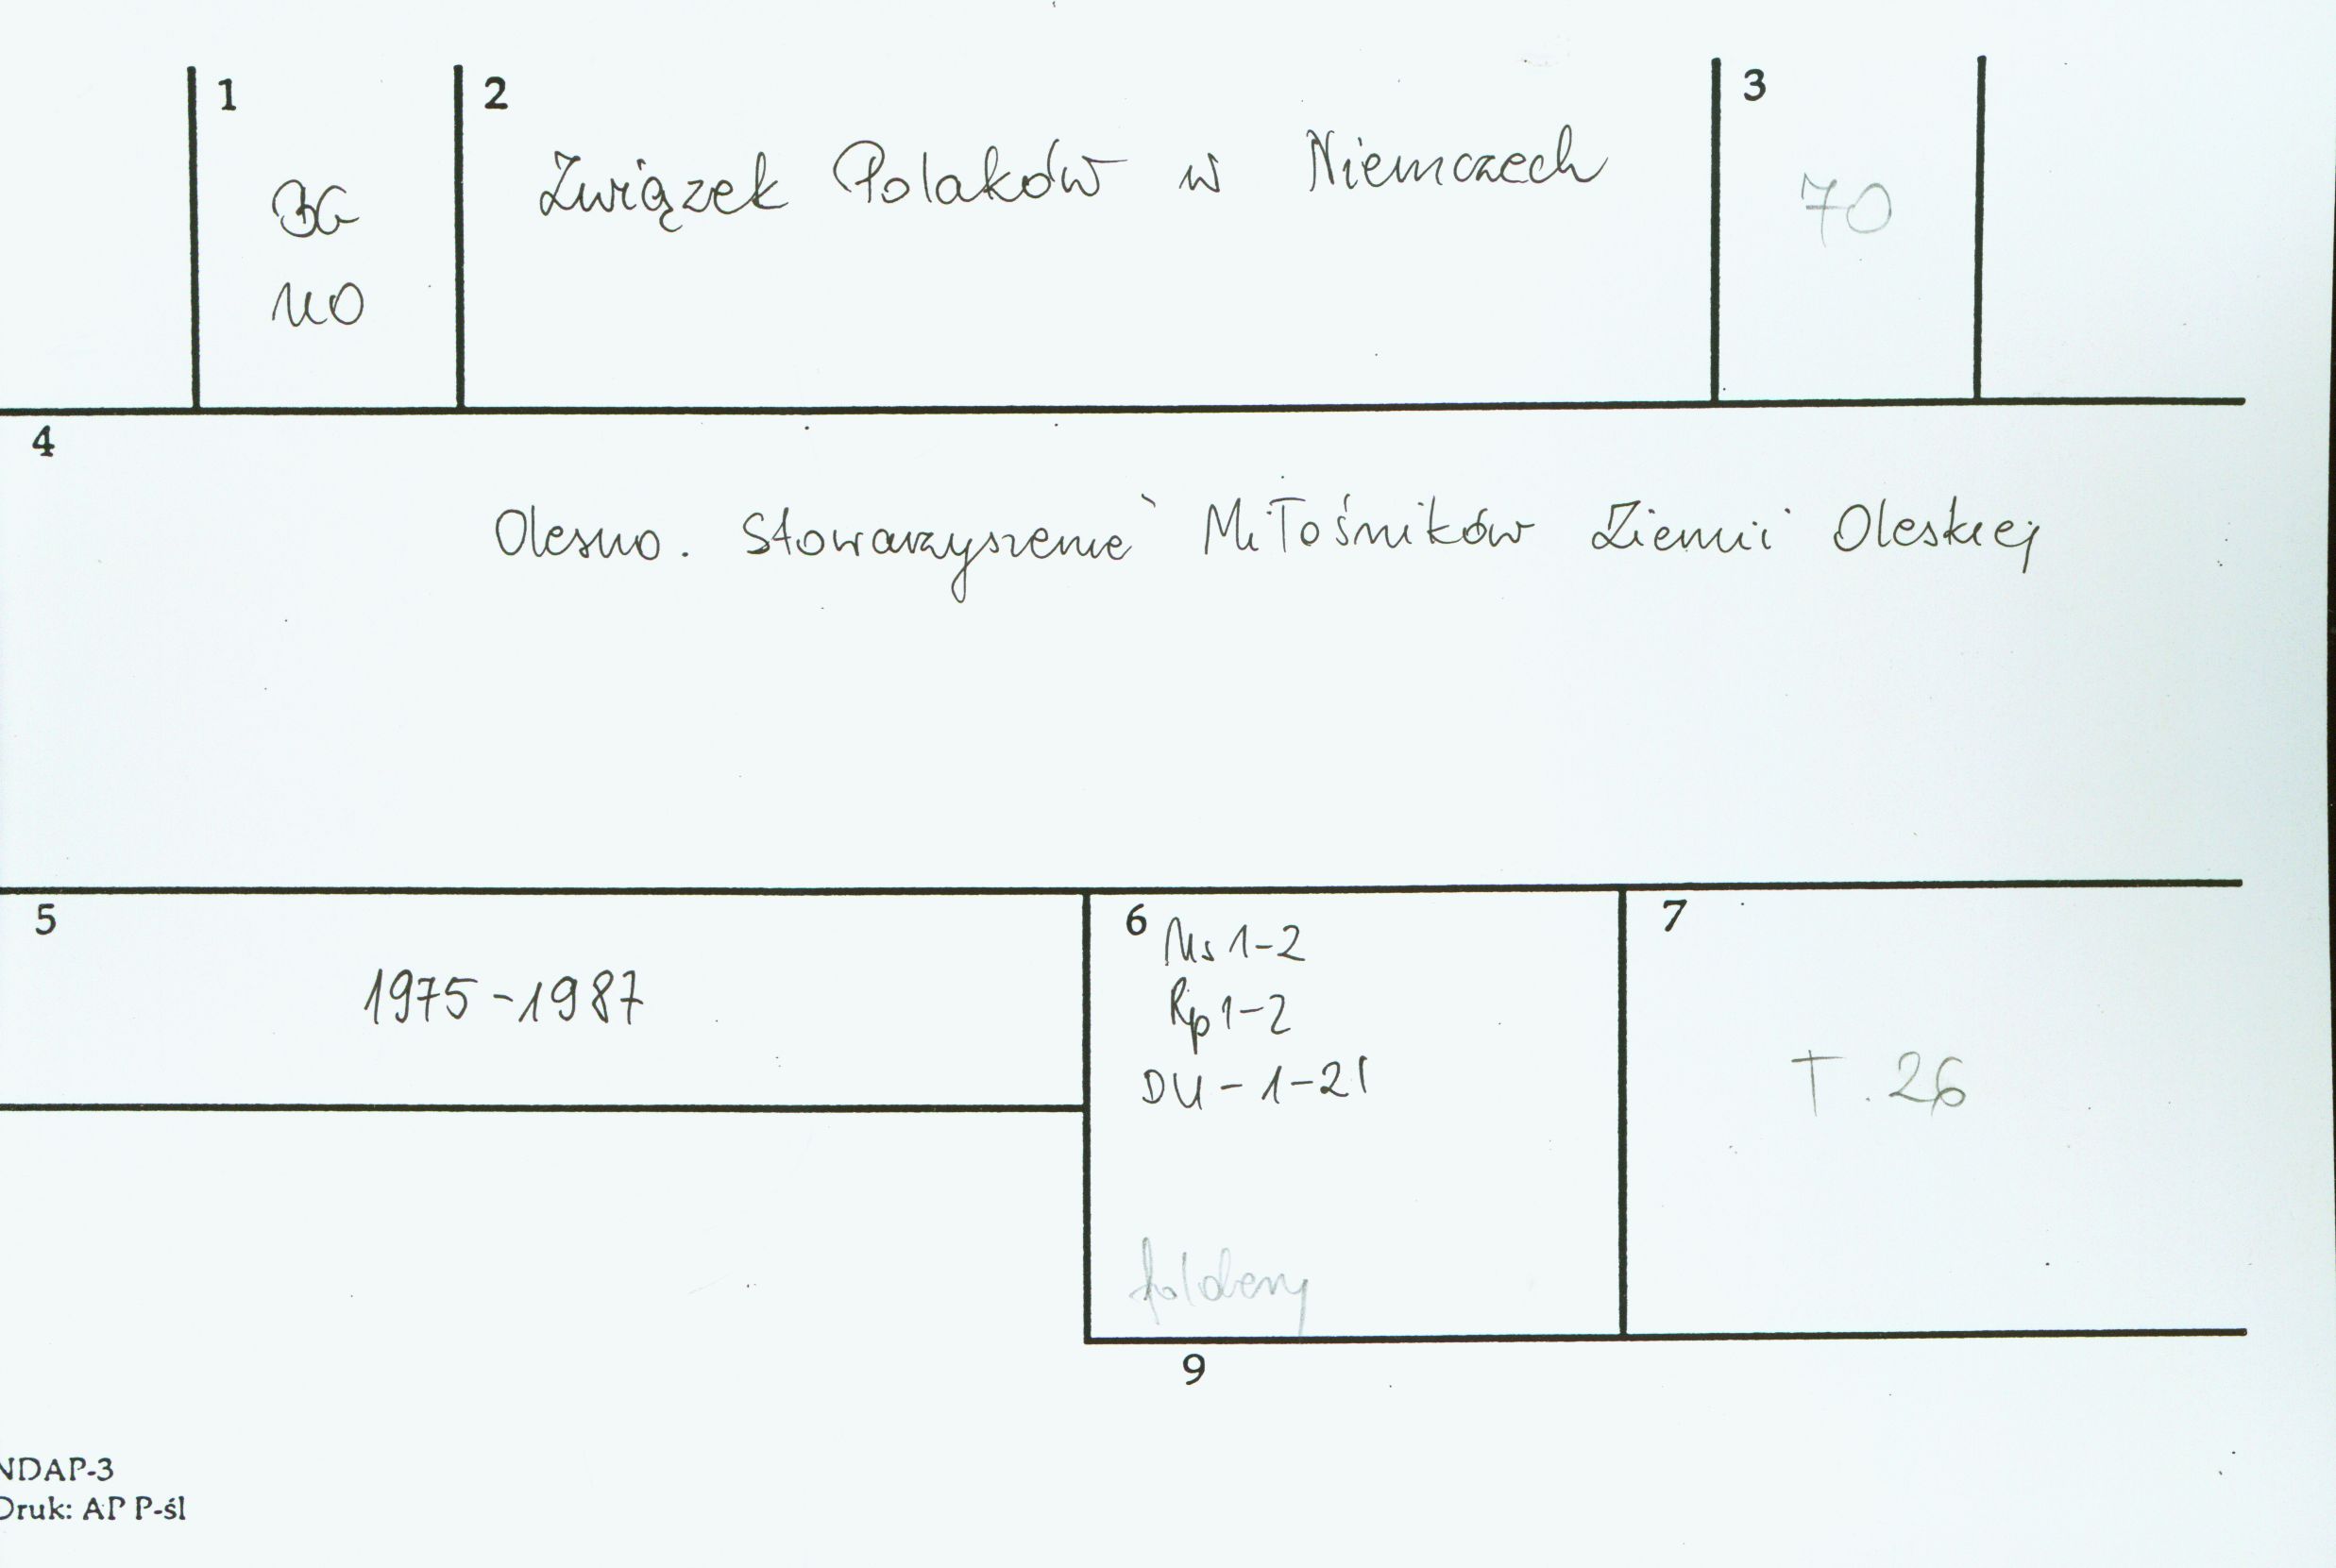 1
BG
MO
2
Związek Polaków w Niemczech
3
70
4
Olesno. Stowarzyszenie Miłośników Ziemii Oleskiej
5
1975-1987
6
Ms 1-2
Rp 1-2
DU - 1-21
foldery
7
T. 26
9
NDAP-3
Druk: AP P-śl